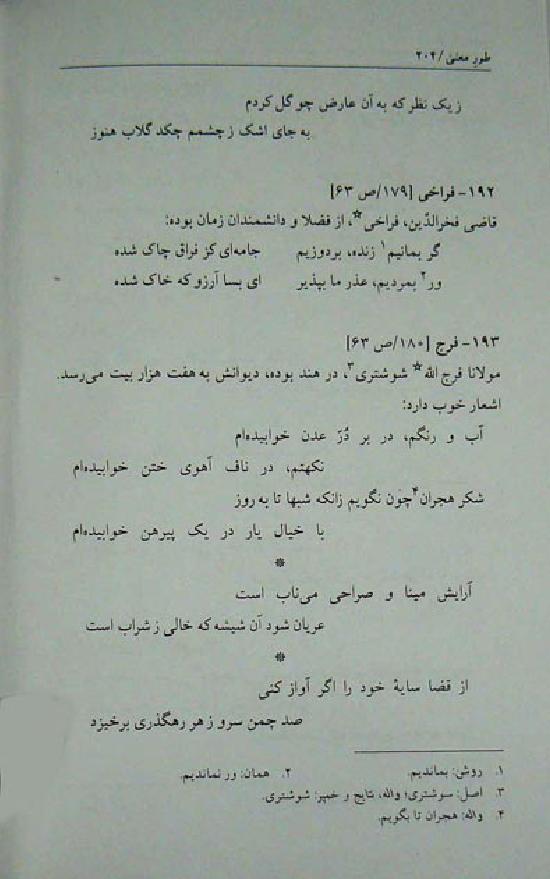 طور معنی / ۲۰۴
ز یک نظر که به آن عارض چو گل کردم
به جای اشک ز چشمم چکد گلاب هنوز
۱۹۲- فراخی [۱۷۹/ص ۶۳]
قاضی فخرالدّین، فراخی*، از فضلا و دانشمندان زمان بوده:
گر بمانیم۱ زنده، بردوزیم جامه‌ای کز فراق چاک شده
ور۲ بمردیم، عذر ما بپذیر ای بسا آرزو که خاک شده
۱۹۳- فرج [۱۸۰/ص ۶۳]
مولانا فرج الله* شوشتری۳، در هند بوده، دیوانش به هفت هزار بیت می‌رسد.
اشعار خوب دارد:
آب و رنگم، در بر دُرّ عدن خوابیده‌ام
نکهتم، در ناف آهوی ختن خوابیده‌ام
شکر هجران۴ چون نگویم زانکه شبها تا به روز
با خیال یار در یک پیرهن خوابیده‌ام
*
آرایش مینا و صراحی می‌ناب است
عریان شود آن شیشه که خالی ز شراب است
*
از قضا سایهٔ خود را اگر آواز کنی
صد چمن سرو ز هر رهگذری برخیزد
۱. روش: بماندیم. ۲. همان: ور نماندیم.
۳. اصل: سوشتری؛ واله، نتایج و خیبر: شوشتری.
۴. واله: هجران تا بگویم.